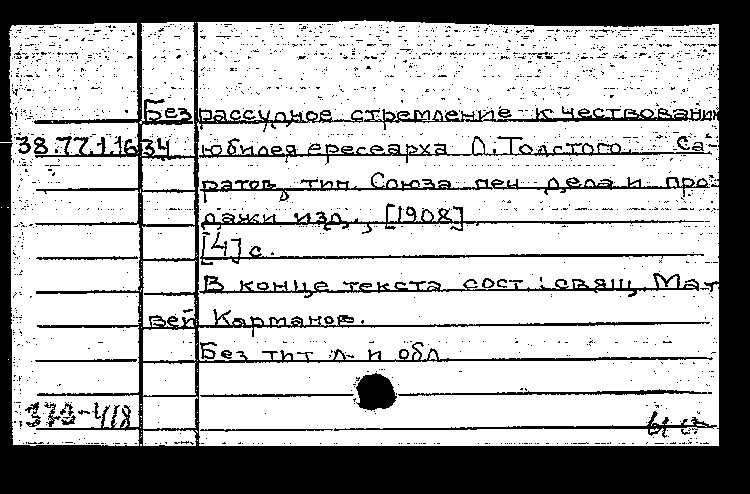 Безрассудное стремление к чествованию
38.77.1.1634 юбилея ересеарха Л.Толстого. Са-
ратов, тип. Союза печ дела и про-
дажи изд., [1908]
[4] с.
В конце текста сост.: свящ. Мат-
вей Карманов.
Без тит л и обл
373-418